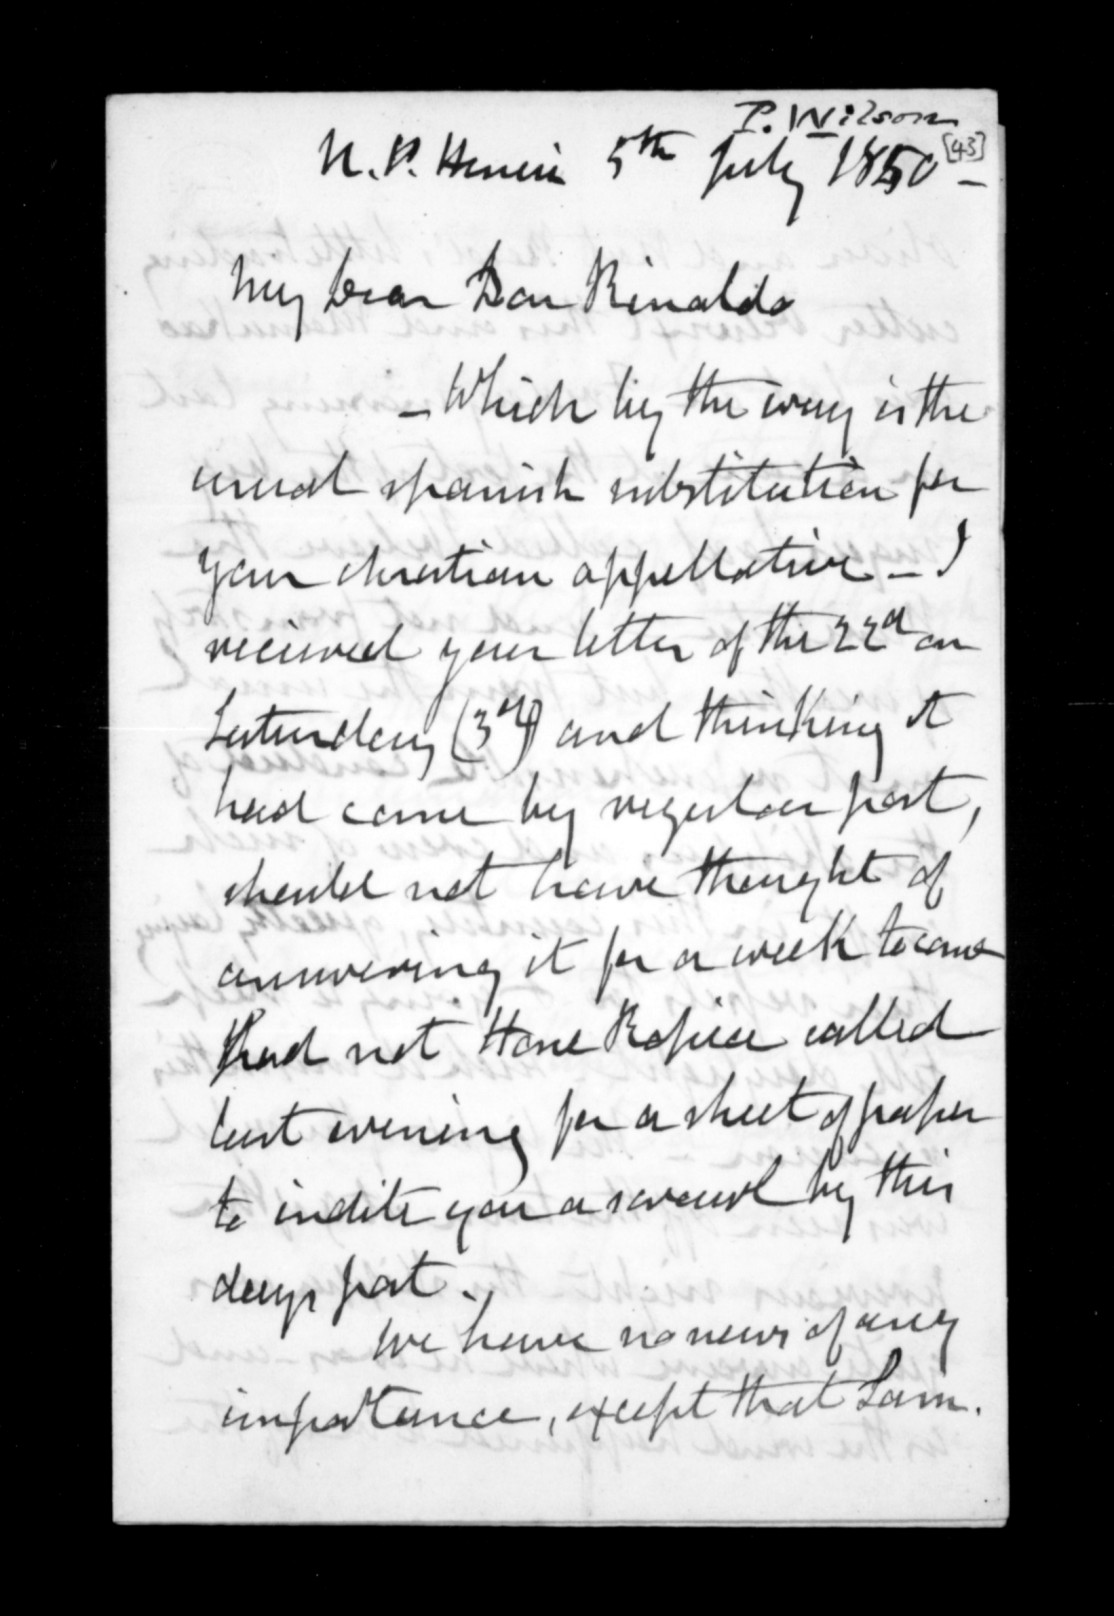 P. Wilson
[43]
N. P. Henui 5th July 1850 -
My Dear Don Rinaldo
- Which by the way is the
usual spanish substitution for
your christian appellative - I
recieved your letter of the 22d on
Saturday (3d) and thinking it
had come by regular post,
should not have thought of
answering it for a week to come
had not Hone Ropiha called
last evening for a sheet of paper
to indite you a scrawl by this
days post.
We have no news of any
importance, except that Sam.